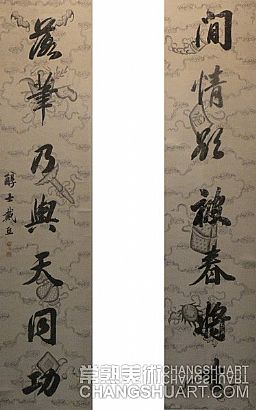 間情欲被春將
落筆乃與天同功
醇士戴熙
常熟美術 CHANGSHUART
CHANGSHUART.COM